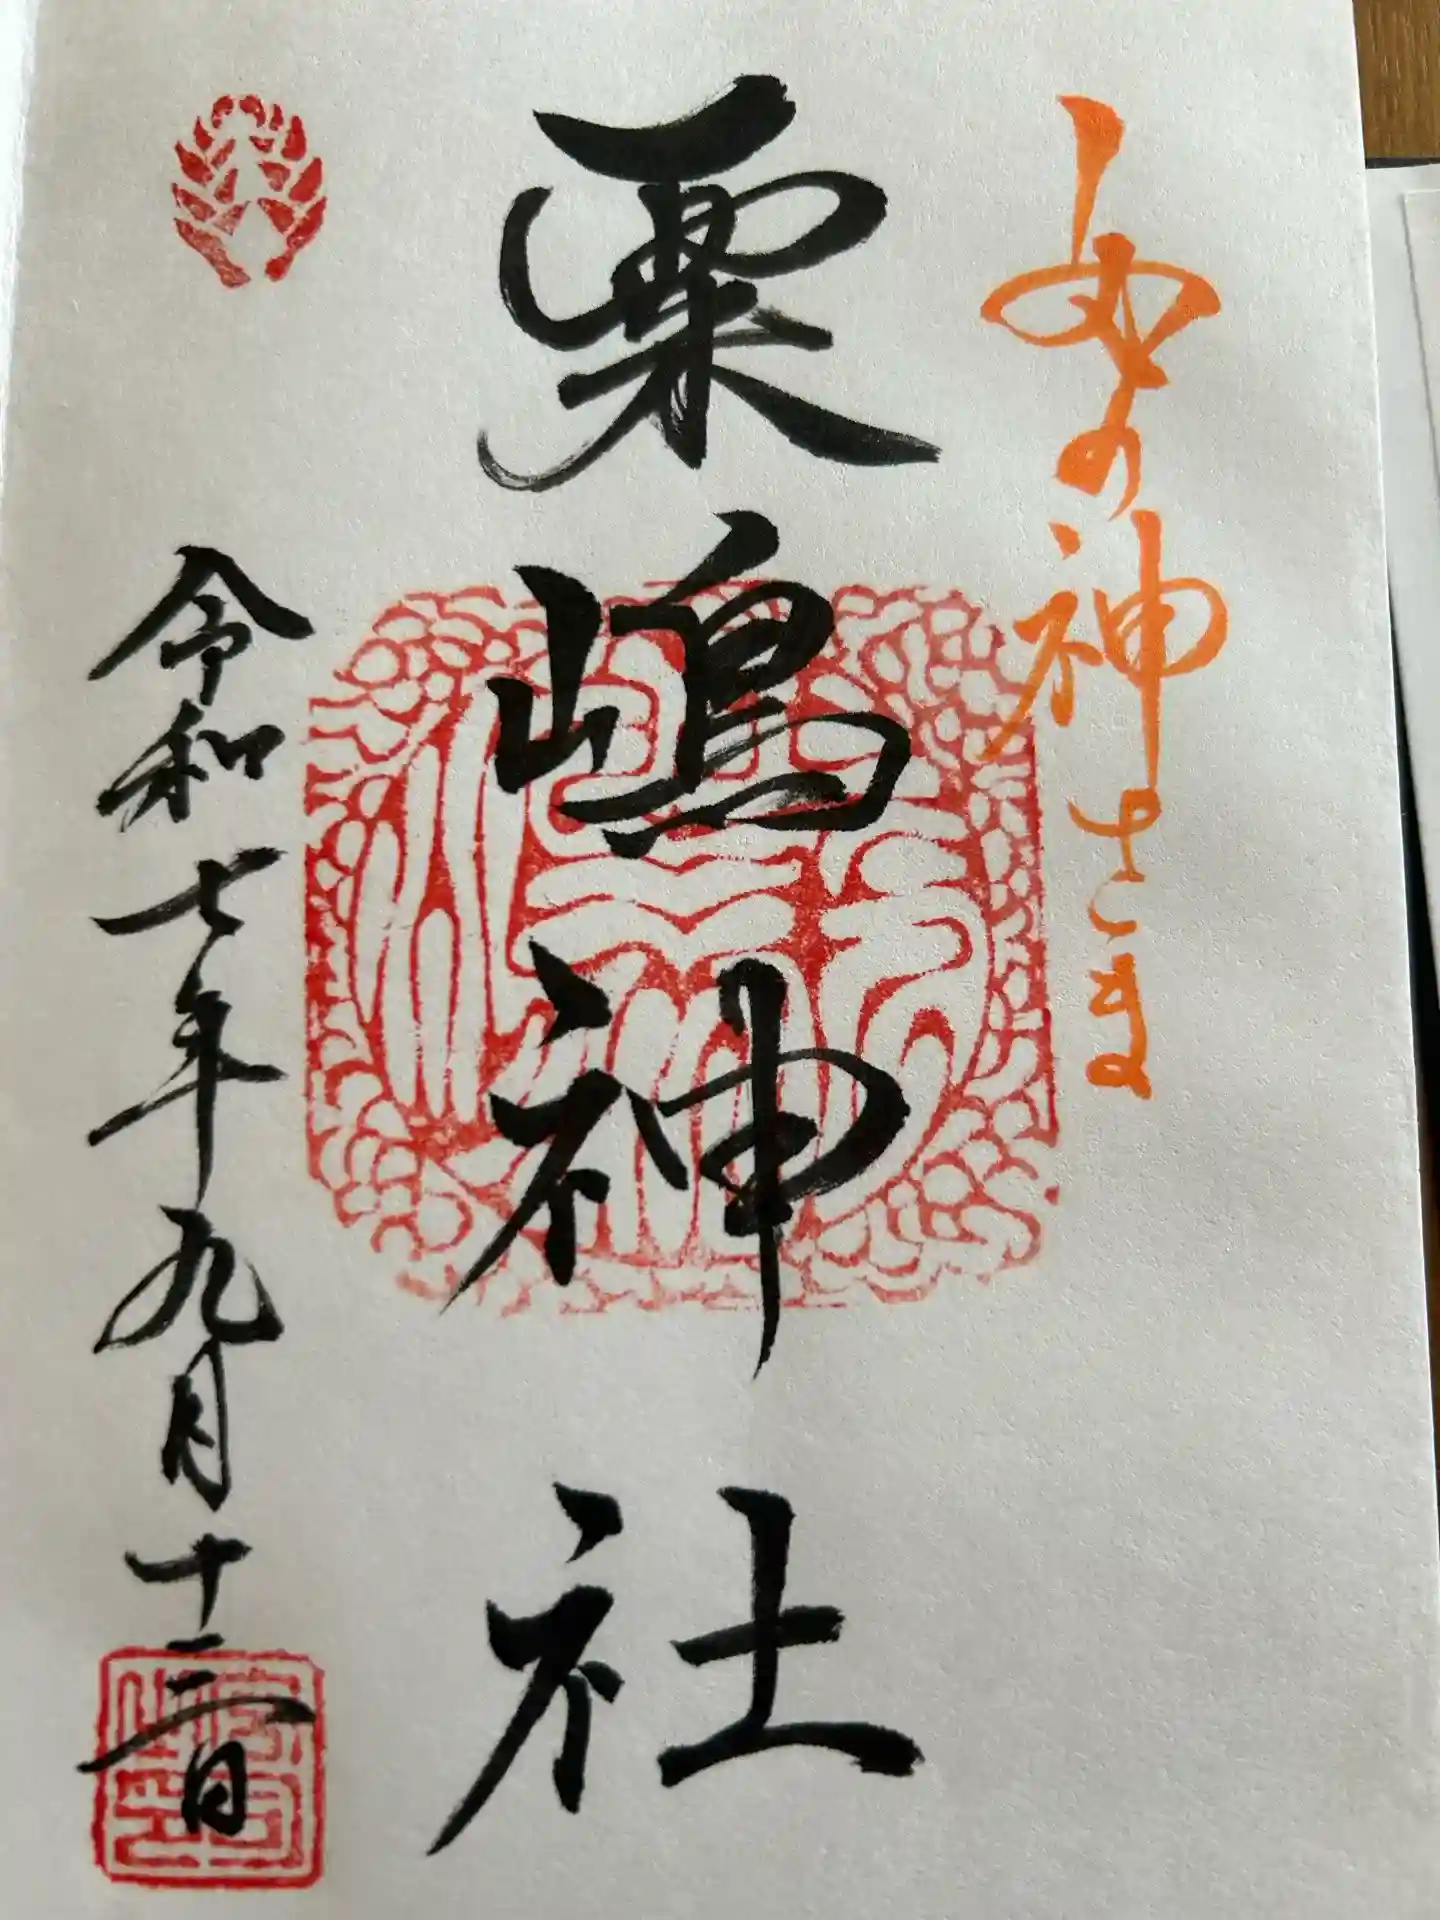 女の神さま
粟嶋神社
令和七年九月十三日